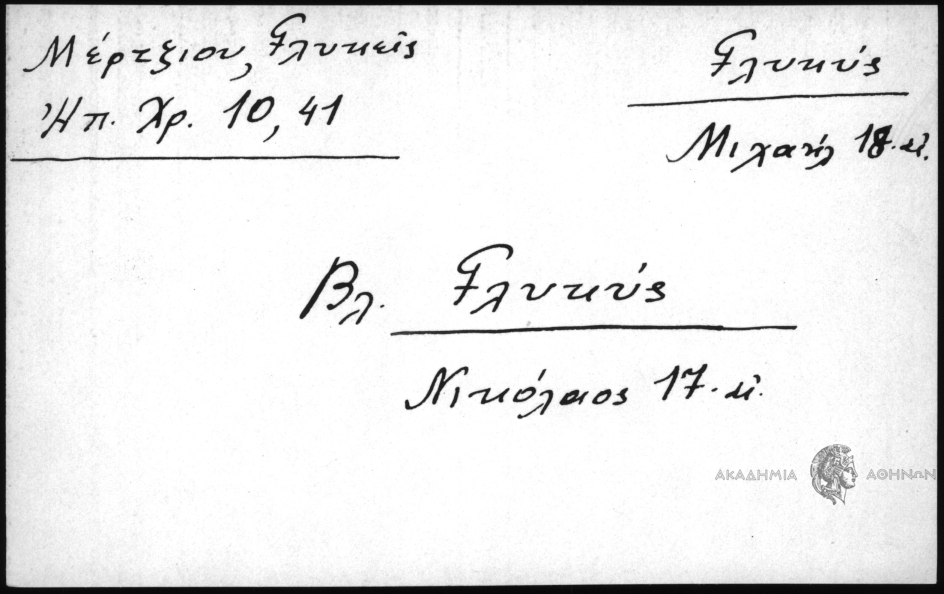 Μέρτζιου, Γλυκεῖς
Ἠπ. Χρ. 10, 41
Γλυκύς
Μιχαήλ 18. αἰ.
Βλ. Γλυκύς
Νικόλαος 17. αἰ.
ΑΚΑΔΗΜΙΑ ΑΘΗΝΩΝ